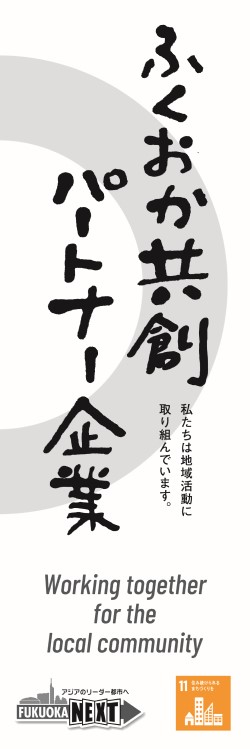 ふくおか共創
パートナー企業
私たちは地域活動に
取り組んでいます。
Working together
for the
local community
アジアのリーダー都市へ
FUKUOKA NEXT
11 住み続けられる
まちづくりを